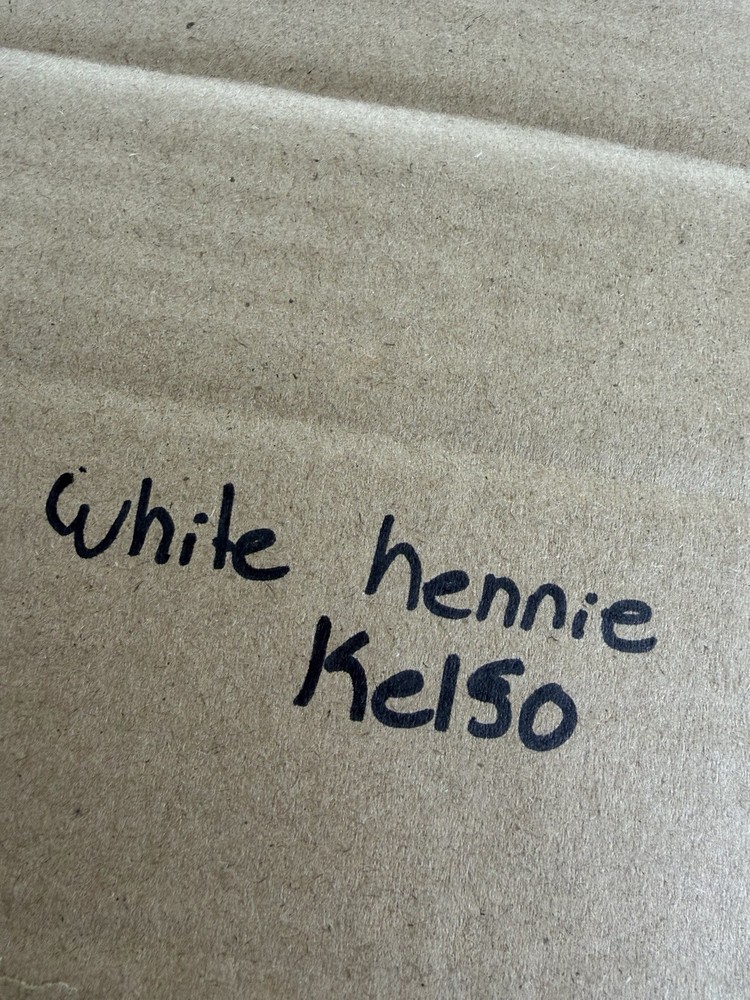 white hennie
Kelso